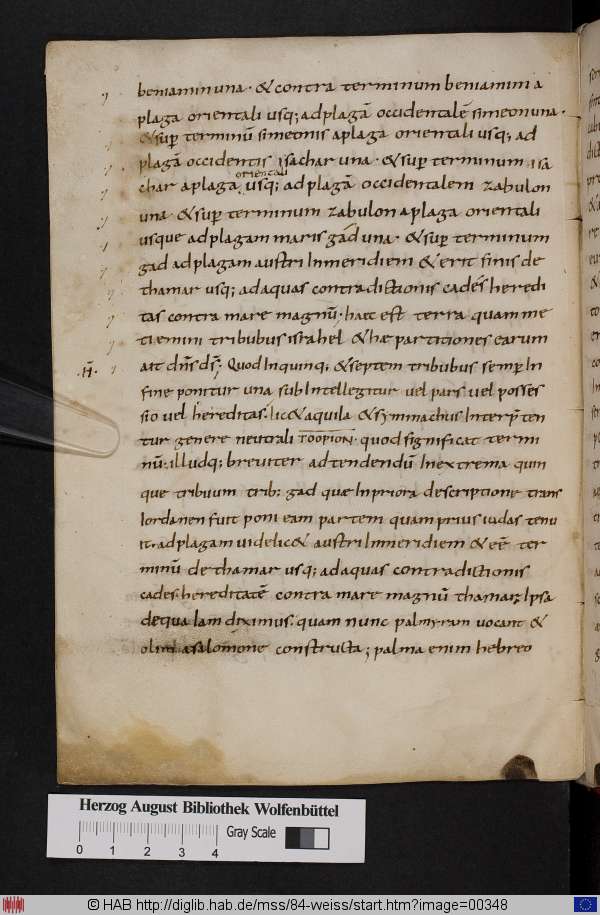 beniamin una · & contra terminum beniamini a
plaga orientali usq; ad plagā occidentalē simeon una ·
& sup terminū simeonis a plaga orientali usq; ad
plagā occidentis isachar una · & sup terminum isa
orientali
char a plaga usq; ad plagā occidentalem zabulon
una · & sup terminum zabulon a plaga orientali
usque ad plagam maris gad una · & sup terminum
gad ad plagam austri In meridiem & erit finis de
thamar usq; ad aquas contradictionis cades heredi
tas contra mare magnū · haec est terra quam me
ti emini tribubus israhel & hae partitiones earum
·H̄· ait dn̄s ds̄; Quod In quinq; & septem tribubus semp In
fine ponitur una sub Intellegitur vel pars vel posses
sio vel hereditas. lic& aquila & symmachus Interp̄ten
tur genere neutrali TOOPION · quod significat termi
nū. illudq; breviter ad tendendū In extrema quin
que tribuum trib: gad quae In priora descriptione trans
Iordanen fuit poni eam partem quam prius iudas tenu
it. ad plagam videlic& austri In meridiem & eē ter
minū de thamar usq; ad aquas contradictionis
cades. hereditatē contra mare magnū thamar; Ipsa
de qua Iam diximus. quam nunc palmyram uocant &
olim a salomone constructa; palma enim hebreo
Herzog August Bibliothek Wolfenbüttel
Gray Scale
0 1 2 3 4
© HAB http://diglib.hab.de/mss/84-weiss/start.htm?image=00348